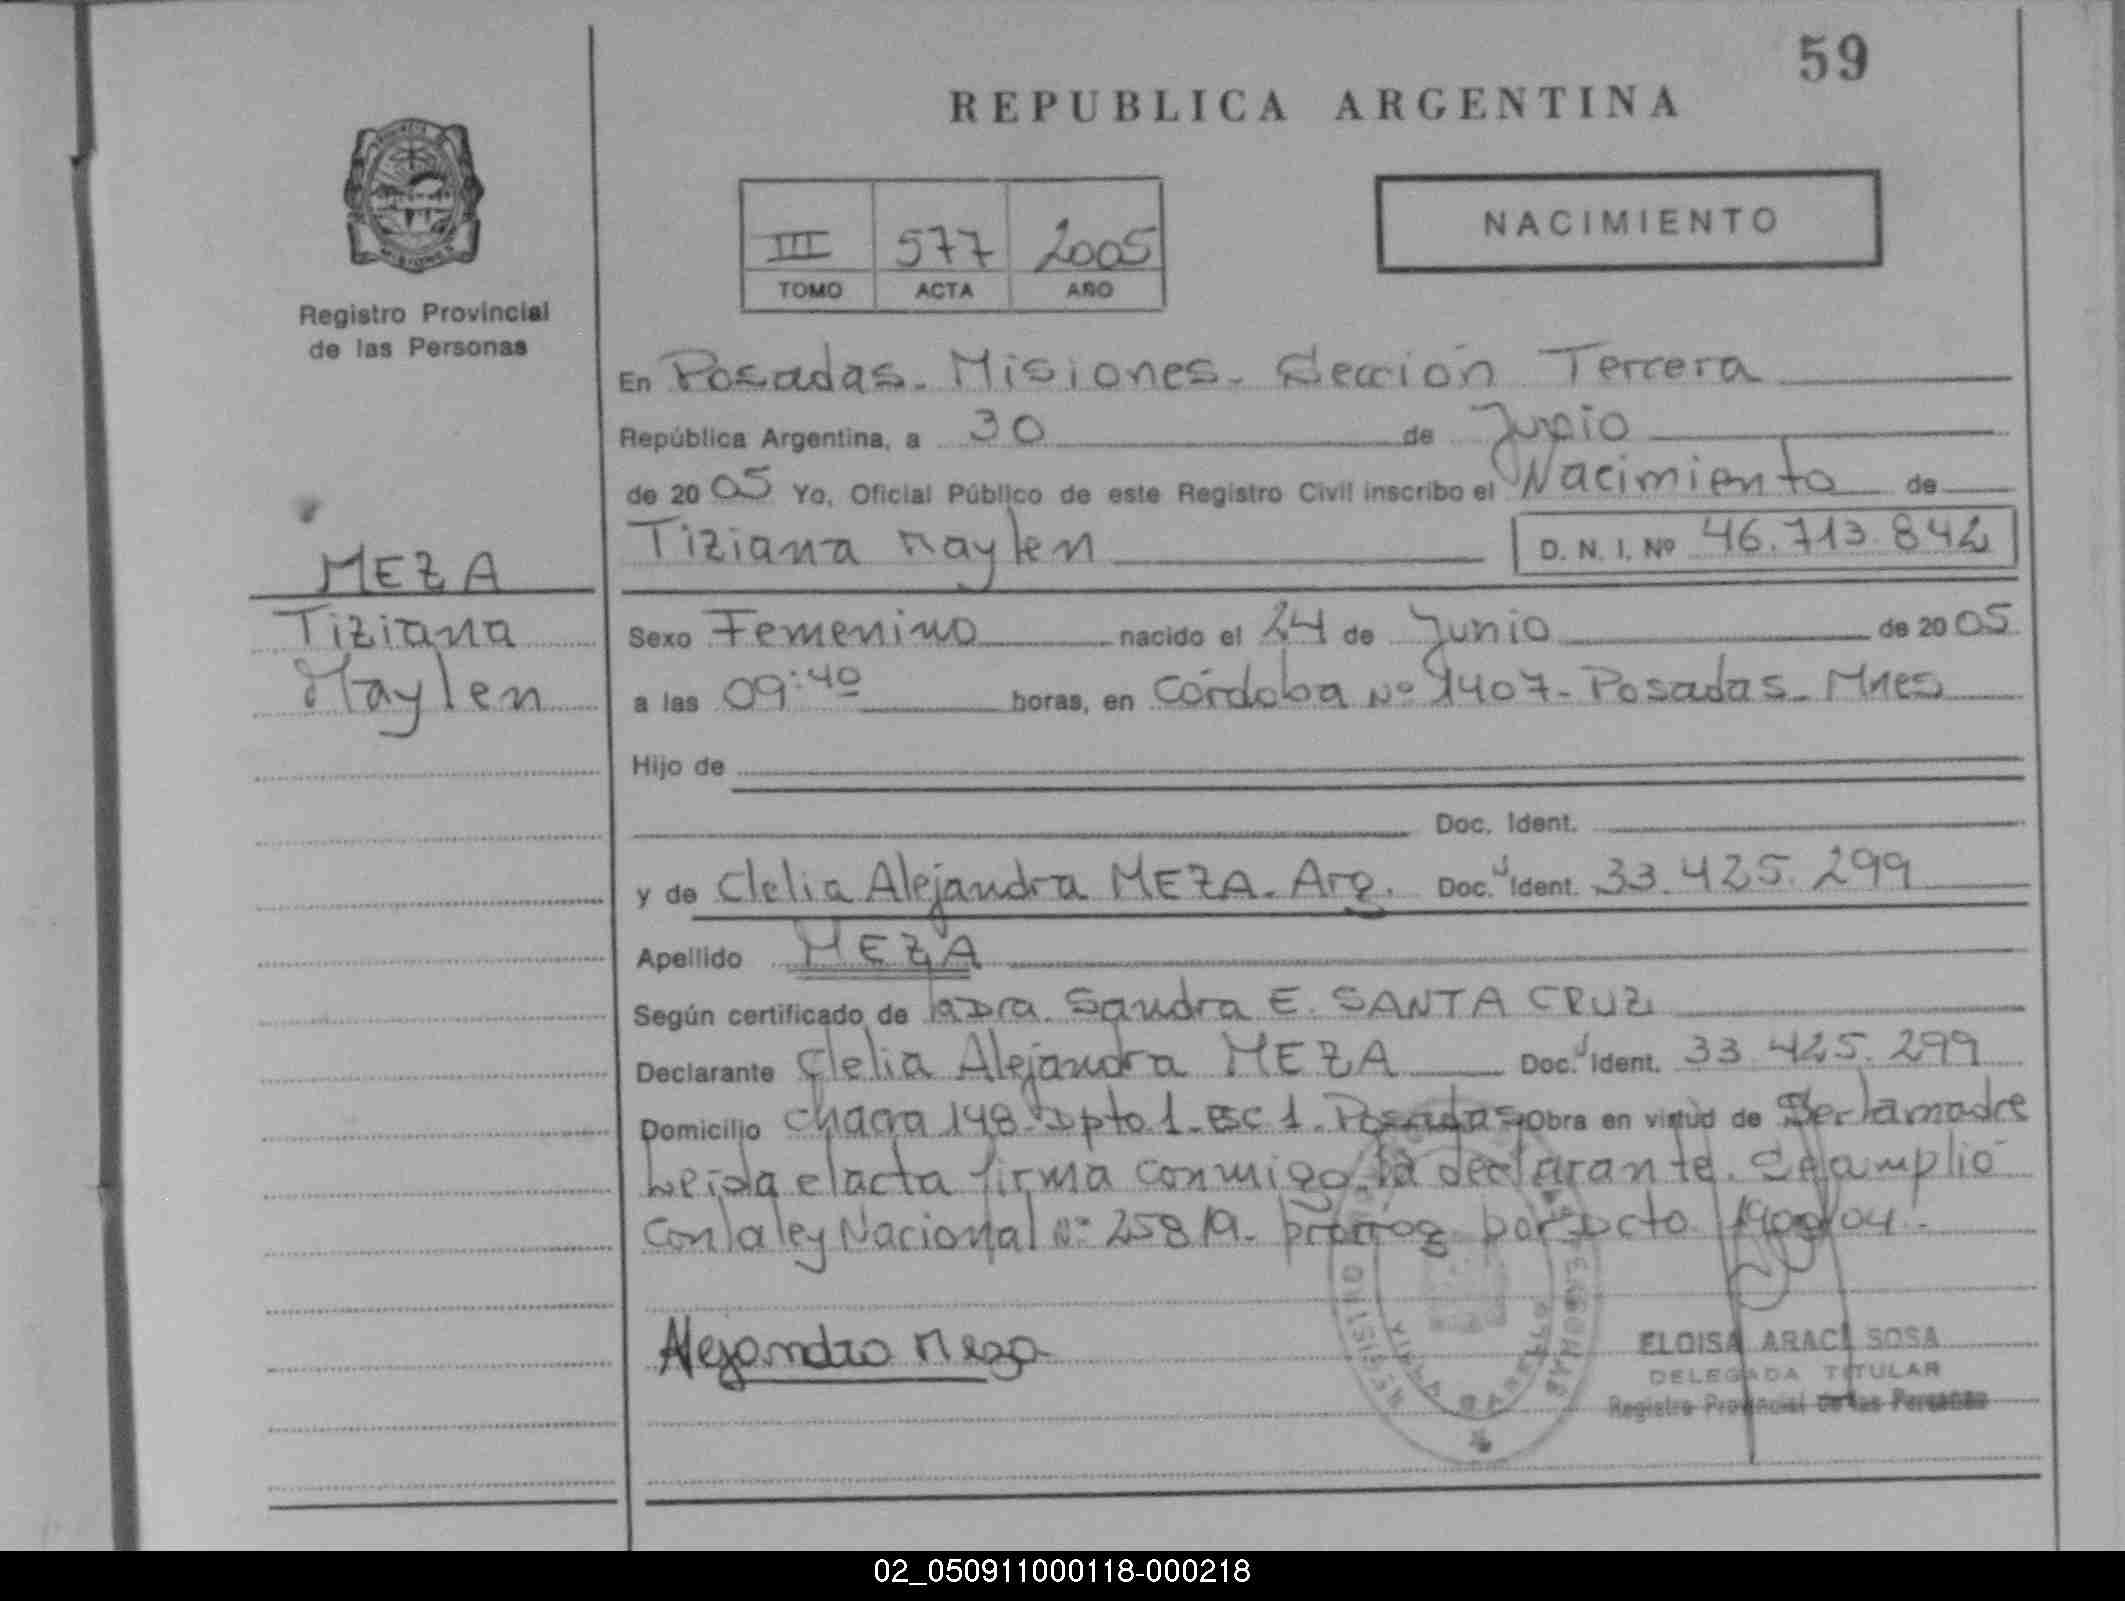 59
REPUBLICA ARGENTINA
NACIMIENTO
III 577 2005
TOMO ACTA AÑO
Registro Provincial
de las Personas
En Posadas - Misiones - Sección Tercera
República Argentina, a 30 de Junio
de 2005 Yo, Oficial Público de este Registro Civil inscribo el Nacimiento de
Tiziana Maylen D. N. I. Nº 46.713.842
MEZA
Tiziana
Maylen
Sexo Femenino nacido el 24 de Junio de 2005
a las 09:40 horas, en Córdoba Nº 1407 - Posadas - Mnes
Hijo de
Doc. Ident.
y de Clelia Alejandra MEZA - Arg. Doc. Ident. 33.425.299
Apellido MEZA
Según certificado de la Dra. Sandra E. SANTA CRUZ
Declarante Clelia Alejandra MEZA Doc. Ident. 33.425.299
Domicilio Chacra 148 - Dpto 1 - esc 1 - Posadas Obra en virtud de Ser la madre
Leida el acta firma conmigo la declarante. Se amplió
Con la ley Nacional Nº 25819 - prorrog por Dcto 1900/04 -
Alejandra Meza
ELOISA ARACI SOSA
DELEGADA TITULAR
Registro Provincial de las Personas
02_050911000118-000218